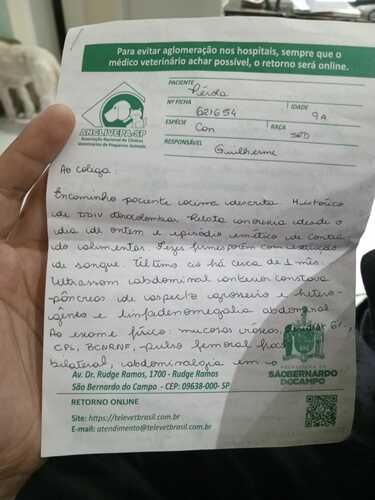 Para evitar aglomeração nos hospitais, sempre que o
médico veterinário achar possível, o retorno será online.
ANCLIVEPA-SP
Associação Nacional de Clínicos
Veterinários de Pequenos Animais
PACIENTE
Pérola
Nº FICHA
621654
IDADE
9A
ESPÉCIE
Can
RAÇA
SRD
RESPONSÁVEL
Guilherme
Ao colega
Encaminho paciente acima descrita. Histórico
de DDIV toracolombar. Relata anorexia desde o
dia de ontem e episódio emético de conteúdo
alimentar. Fezes firmes porém com
de sangue. Último cio há cerca de 1 mês.
Ultrassom abdominal anterior constava
pâncreas de aspecto grosseiro e hetero-
gêneo e linfadenomegalia abdominal.
Ao exame físico: mucosas róseas,
BCRNF, pulso femoral
bilateral, abdominalgia em
Av. Dr. Rudge Ramos, 1700 - Rudge Ramos
São Bernardo do Campo - CEP: 09638-000- SP
PREFEITURA DE
SÃOBERNARDO
DOCAMPO
RETORNO ONLINE
Site: https://televetbrasil.com.br
E-mail: atendimento@televetbrasil.com.br